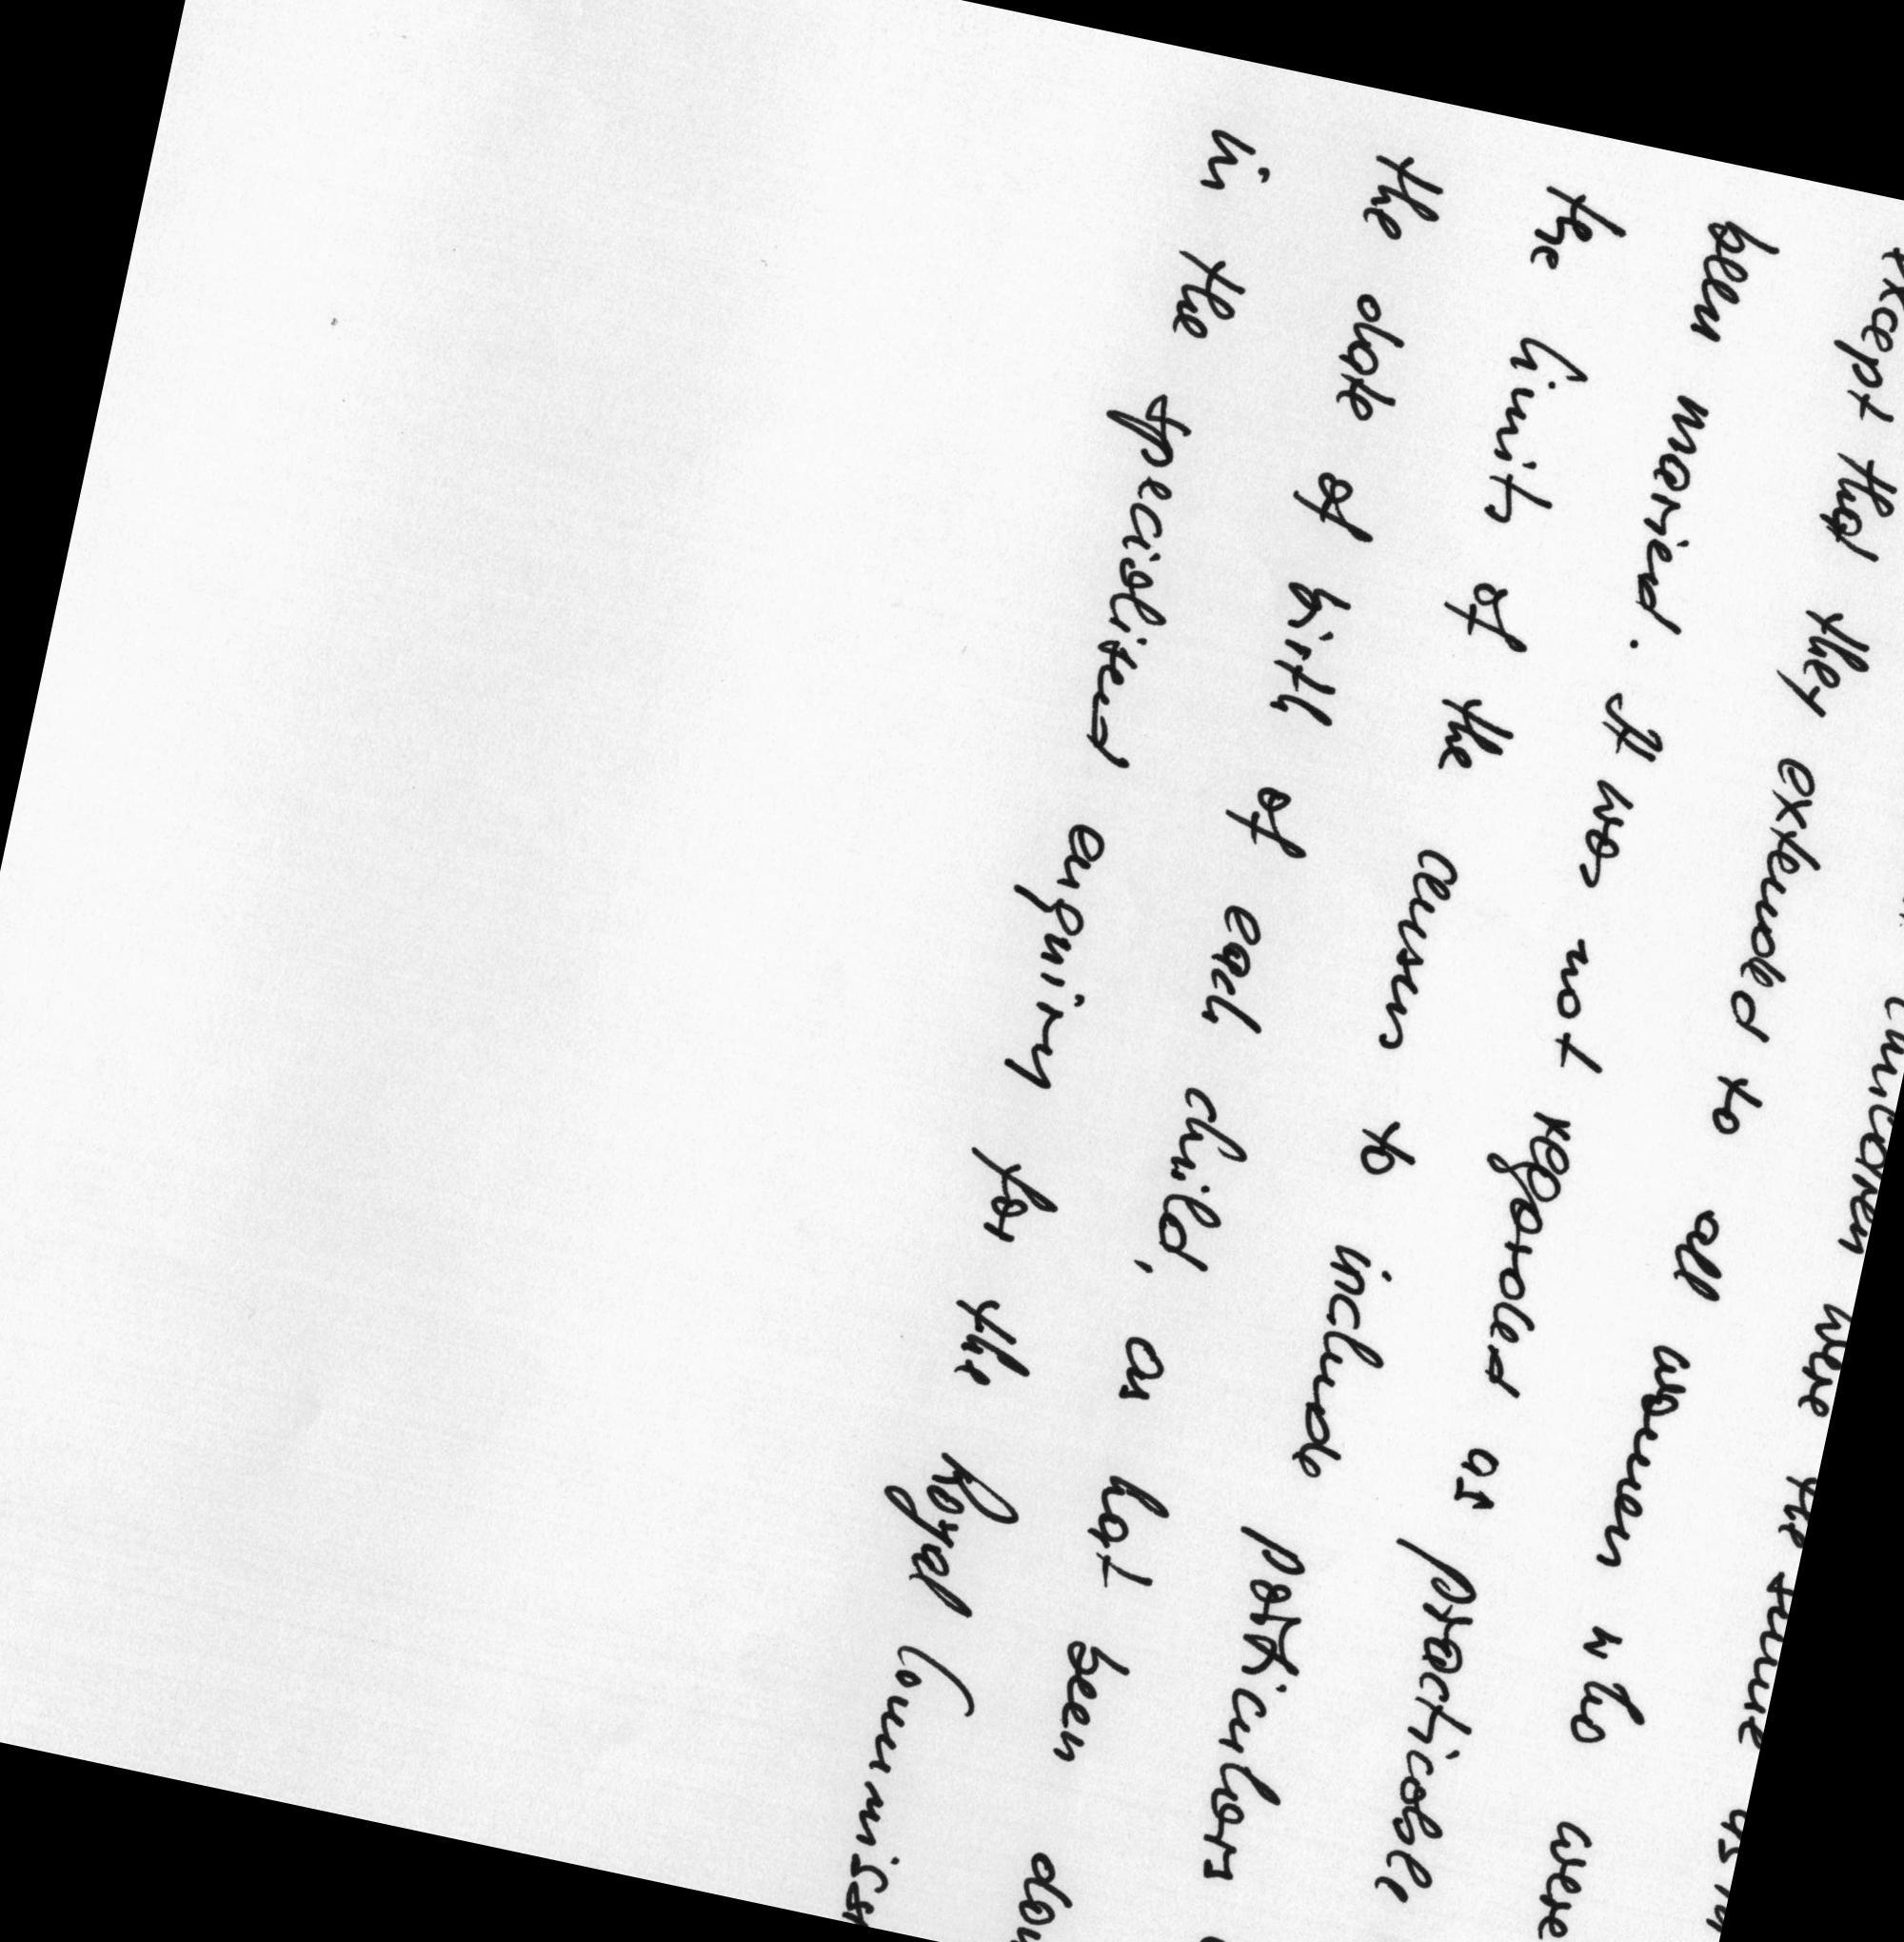 except that they extended to all women who were
been married. It was not regarded as practicable
the limits of the census to include particulars
the date of birth of each child, as had been
in the specialised enquiry for the Royal Commiss